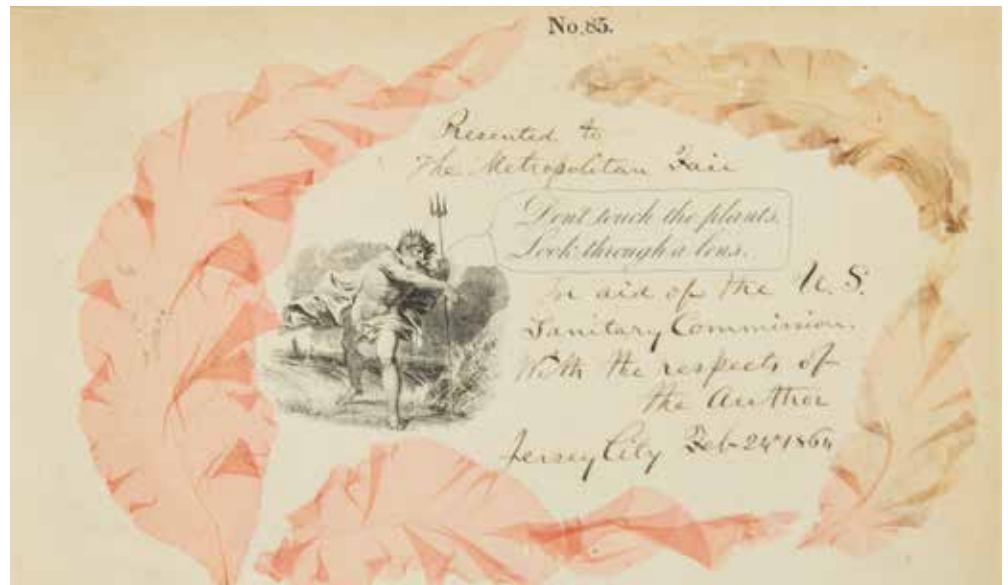 No. 85.
Presented to
The Metropolitan Fair
Dont touch the plants.
Look through a lens.
In aid of the U.S.
Sanitary Commission.
With the respects of
the Author
Jersey City Feb 24th 1864